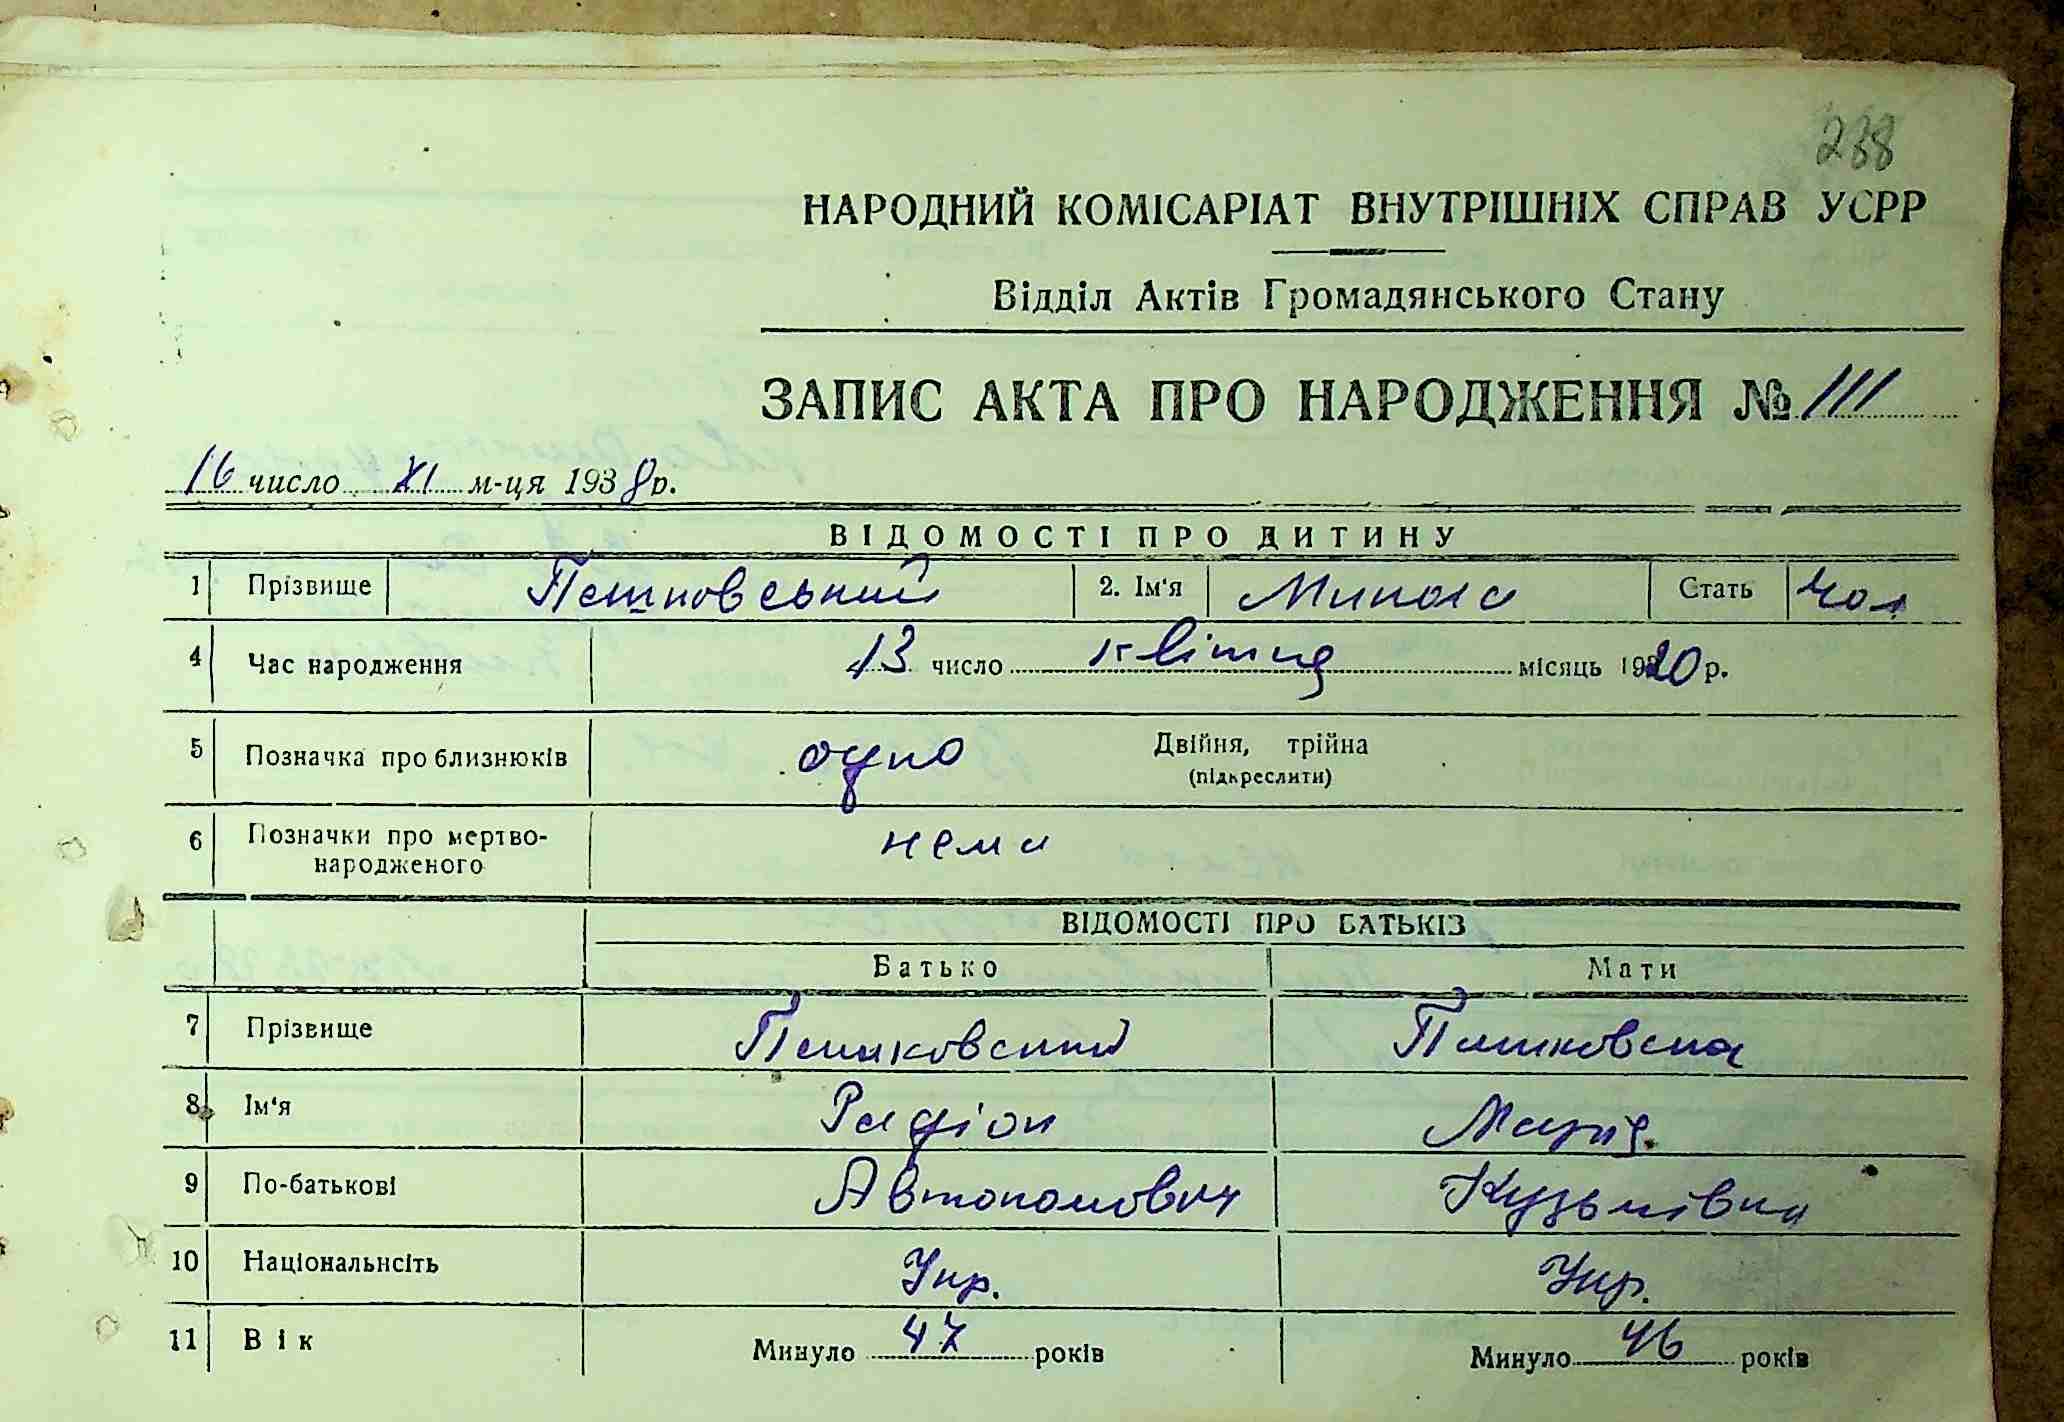 288
НАРОДНИЙ КОМІСАРІАТ ВНУТРІШНІХ СПРАВ УСРР
Відділ Актів Громадянського Стану
ЗАПИС АКТА ПРО НАРОДЖЕННЯ № 111
16 число XI м-ця 1938 р.
ВІДОМОСТІ ПРО ДИТИНУ
1 Прізвище Пешковський 2. Ім'я Микола Стать чол
4 Час народження 13 число квітня місяць 1920 р.
5 Позначка про близнюків одно Двійня, трійна
(підкреслити)
6 Позначки про мертво-
народженого нема
ВІДОМОСТІ ПРО БАТЬКІВ
Батько Мати
7 Прізвище Пешковський Пешковська
8 Ім'я Радіон Марія
9 По-батькові Автономович Кузьмівна
10 Національність Укр. Укр.
11 Вік Минуло 47 років Минуло 46 років